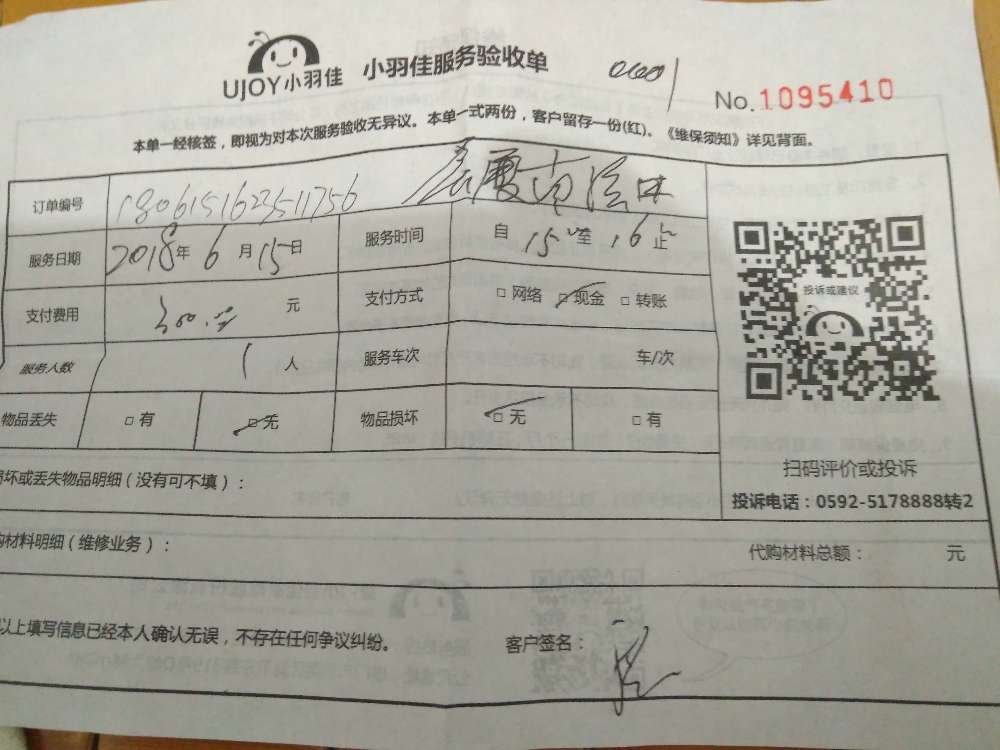 UJOY小羽佳 小羽佳服务验收单
No.1095410
本单一经核签，即视为对本次服务验收无异议。本单一式两份，客户留存一份(红)、《维保须知》详见背面。
订单编号
服务日期 2018年 6 月 15 日 服务时间 自 15 至 16 止
支付费用 300 元 支付方式 □ 网络 □ 现金 □ 转账
服务人数 1 人 服务车次 车/次
物品丢失 □ 有 □ 无 物品损坏 □ 无 □ 有
投诉或建议
扫码评价或投诉
投诉电话：0592-5178888转2
坏或丢失物品明细（没有可不填）：
购材料明细（维修业务）： 代购材料总额： 元
以上填写信息已经本人确认无误，不存在任何争议纠纷。 客户签名：